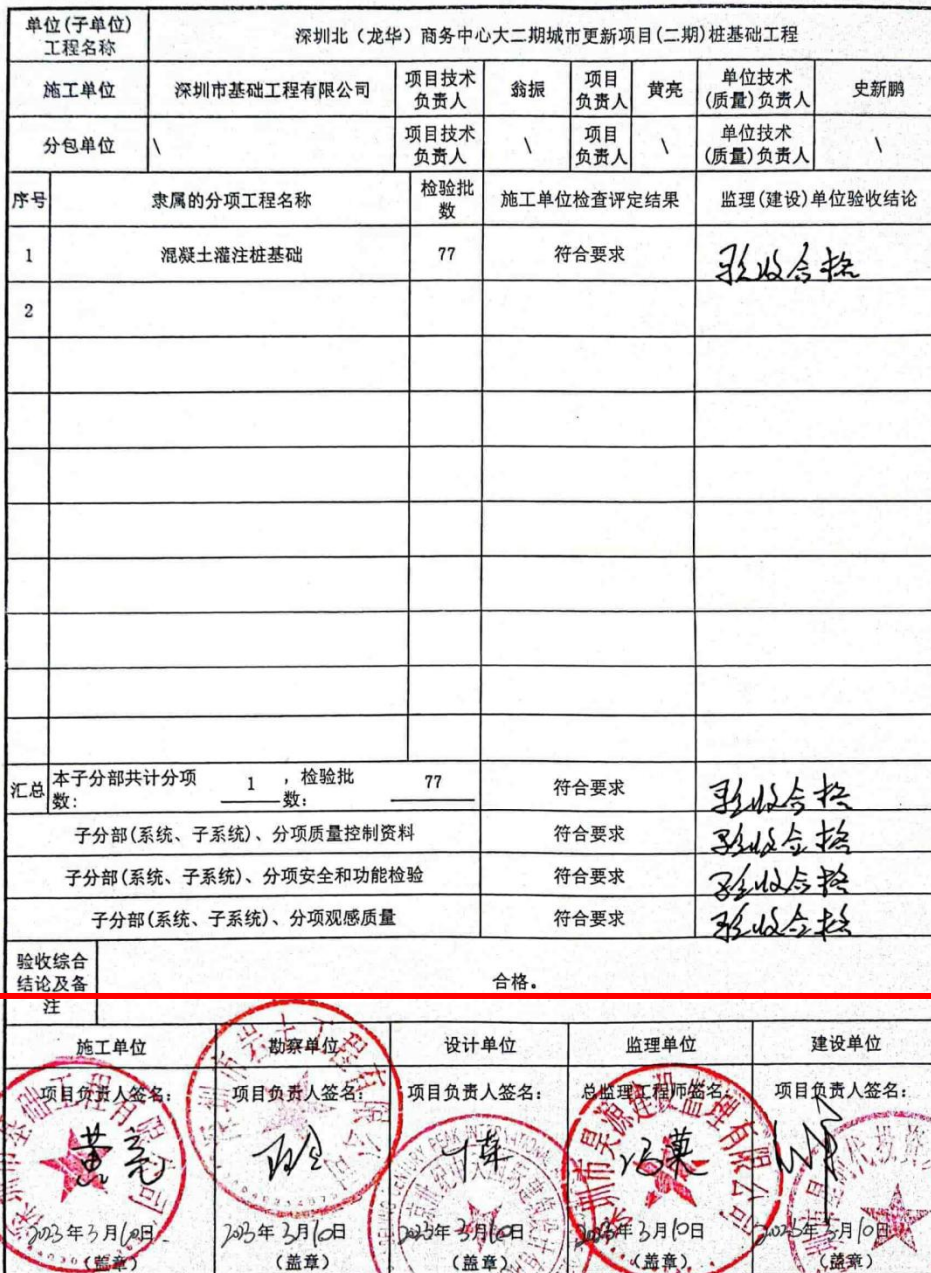 单位(子单位)
工程名称
深圳北（龙华）商务中心大二期城市更新项目(二期)桩基础工程
施工单位
深圳市基础工程有限公司
项目技术
负责人
翁振
项目
负责人
黄亮
单位技术
(质量)负责人
史新鹏
分包单位
\
项目技术
负责人
\
项目
负责人
\
单位技术
(质量)负责人
\
序号
隶属的分项工程名称
检验批
数
施工单位检查评定结果
监理(建设)单位验收结论
1
混凝土灌注桩基础
77
符合要求
验收合格
2
汇总
本子分部共计分项
数：
1
，检验批
数：
77
符合要求
验收合格
子分部(系统、子系统)、分项质量控制资料
符合要求
验收合格
子分部(系统、子系统)、分项安全和功能检验
符合要求
验收合格
子分部(系统、子系统)、分项观感质量
符合要求
验收合格
验收综合
结论及备
注
合格。
施工单位
勘察单位
设计单位
监理单位
建设单位
项目负责人签名：
项目负责人签名：
项目负责人签名：
总监理工程师签名：
项目负责人签名：
黄亮
2023年3月10日
2023年3月10日
2023年3月10日
2023年3月10日
2023年3月10日
(盖章)
(盖章)
(盖章)
(盖章)
(盖章)